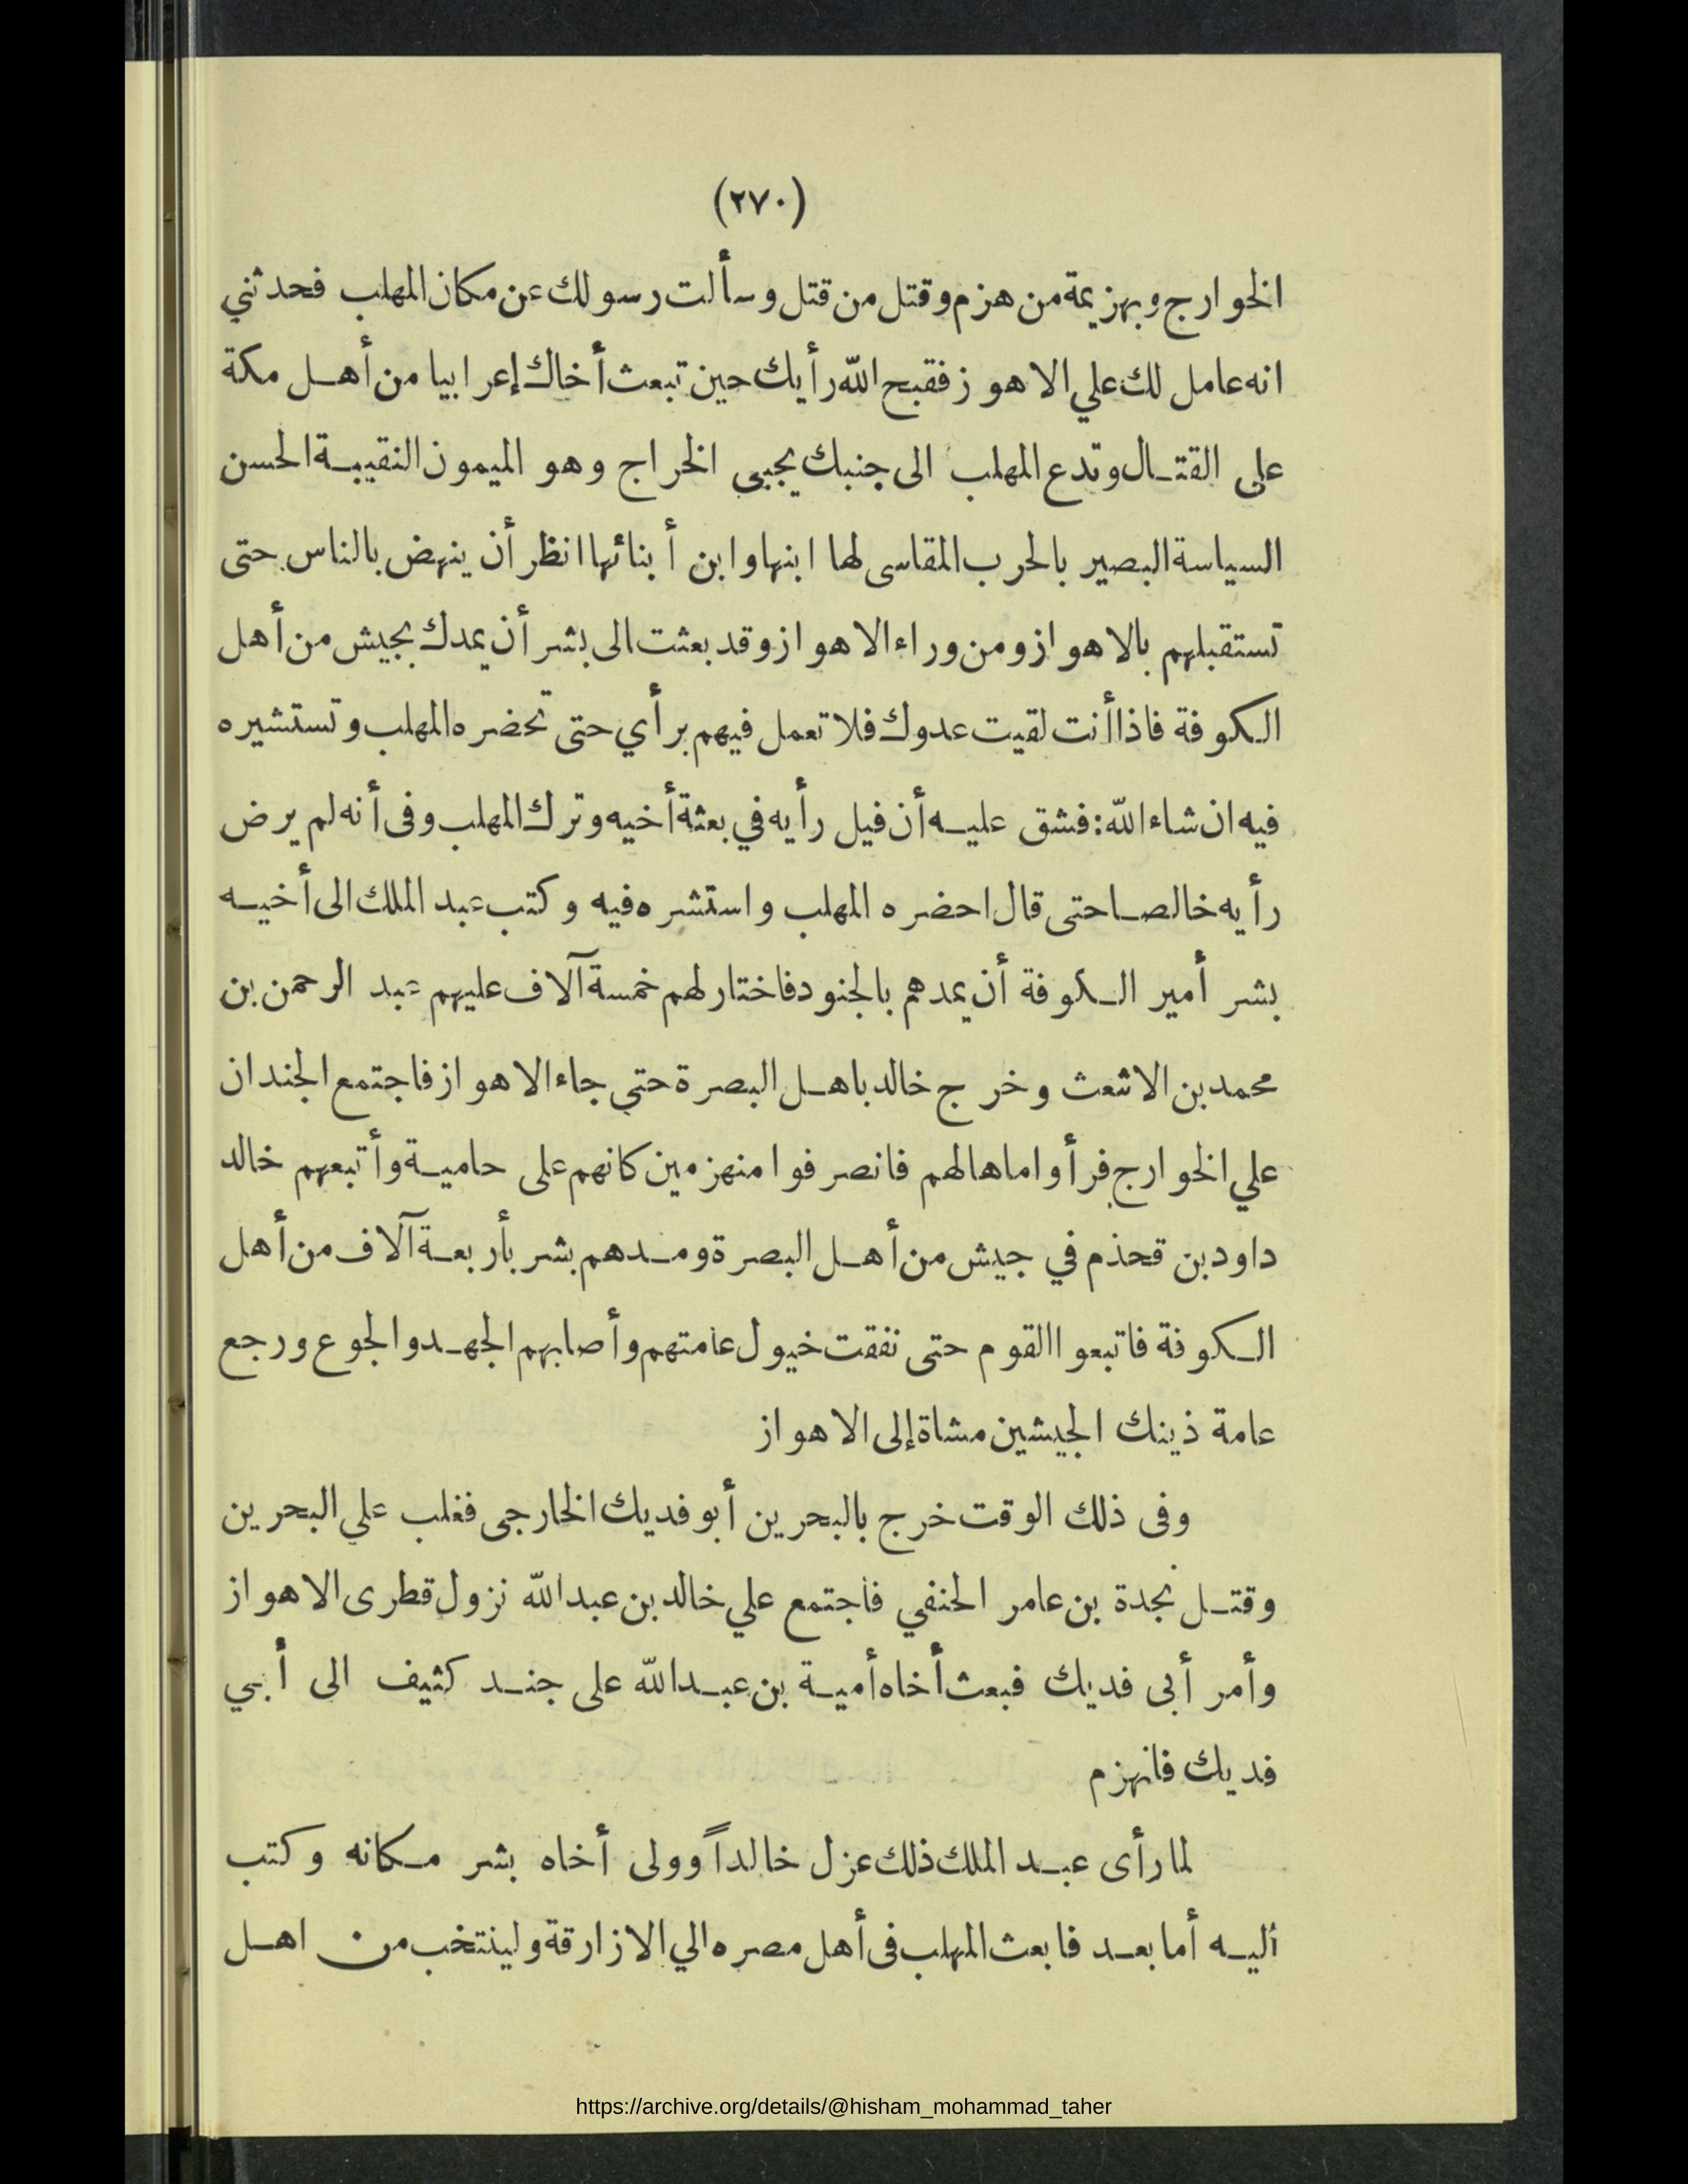 (٢٧٠)
الخوارج وبهزيمة من هزم وقتل من قتل وسألت رسولك عن مكان المهلب فحدثني
انه عامل لك علي الاهواز فقبح الله رأيك حين تبعث أخاك إعرابيا من أهل مكة
على القتال وتدع المهلب الى جنبك يجبى الخراج وهو الميمون النقيبة الحسن
السياسة البصير بالحرب المقاسى لها ابنها وابن أبنائها انظر أن ينهض بالناس حتى
تستقبلهم بالاهواز ومن وراء الاهواز وقد بعثت الى بشر أن يمدك بجيش من أهل
الكوفة فاذا أنت لقيت عدوك فلا تعمل فيهم برأي حتى تحضره المهلب وتستشيره
فيه ان شاء الله: فشق عليه أن فيل رأيه في بعثة أخيه وترك المهلب وفى أنه لم يرض
رأيه خالصا حتى قال احضره المهلب واستشره فيه وكتب عبد الملك الى أخيه
بشر أمير الكوفة أن يمدهم بالجنود فاختار لهم خمسة آلاف عليهم عبد الرحمن بن
محمد بن الاشعث وخرج خالد باهل البصرة حتى جاء الاهواز فاجتمع الجندان
علي الخوارج فرأوا ما هالهم فانصرفوا منهزمين كانهم على حامية وأتبعهم خالد
داود بن قحذم في جيش من أهل البصرة ومدهم بشر بأربعة آلاف من أهل
الكوفة فاتبعوا القوم حتى نفقت خيول عامتهم وأصابهم الجهد والجوع ورجع
عامة ذينك الجيشين مشاة إلى الاهواز
وفى ذلك الوقت خرج بالبحرين أبو فديك الخارجى فغلب علي البحرين
وقتل نجدة بن عامر الحنفي فاجتمع علي خالد بن عبد الله نزول قطرى الاهواز
وأمر أبى فديك فبعث أخاه أمية بن عبد الله على جند كثيف الى أبي
فديك فانهزم
لما رأى عبد الملك ذلك عزل خالداً وولى أخاه بشر مكانه وكتب
أليه أما بعد فابعث المهلب فى أهل مصره الي الازارقة ولينتخب من اهل
https://archive.org/details/@hisham_mohammad_taher